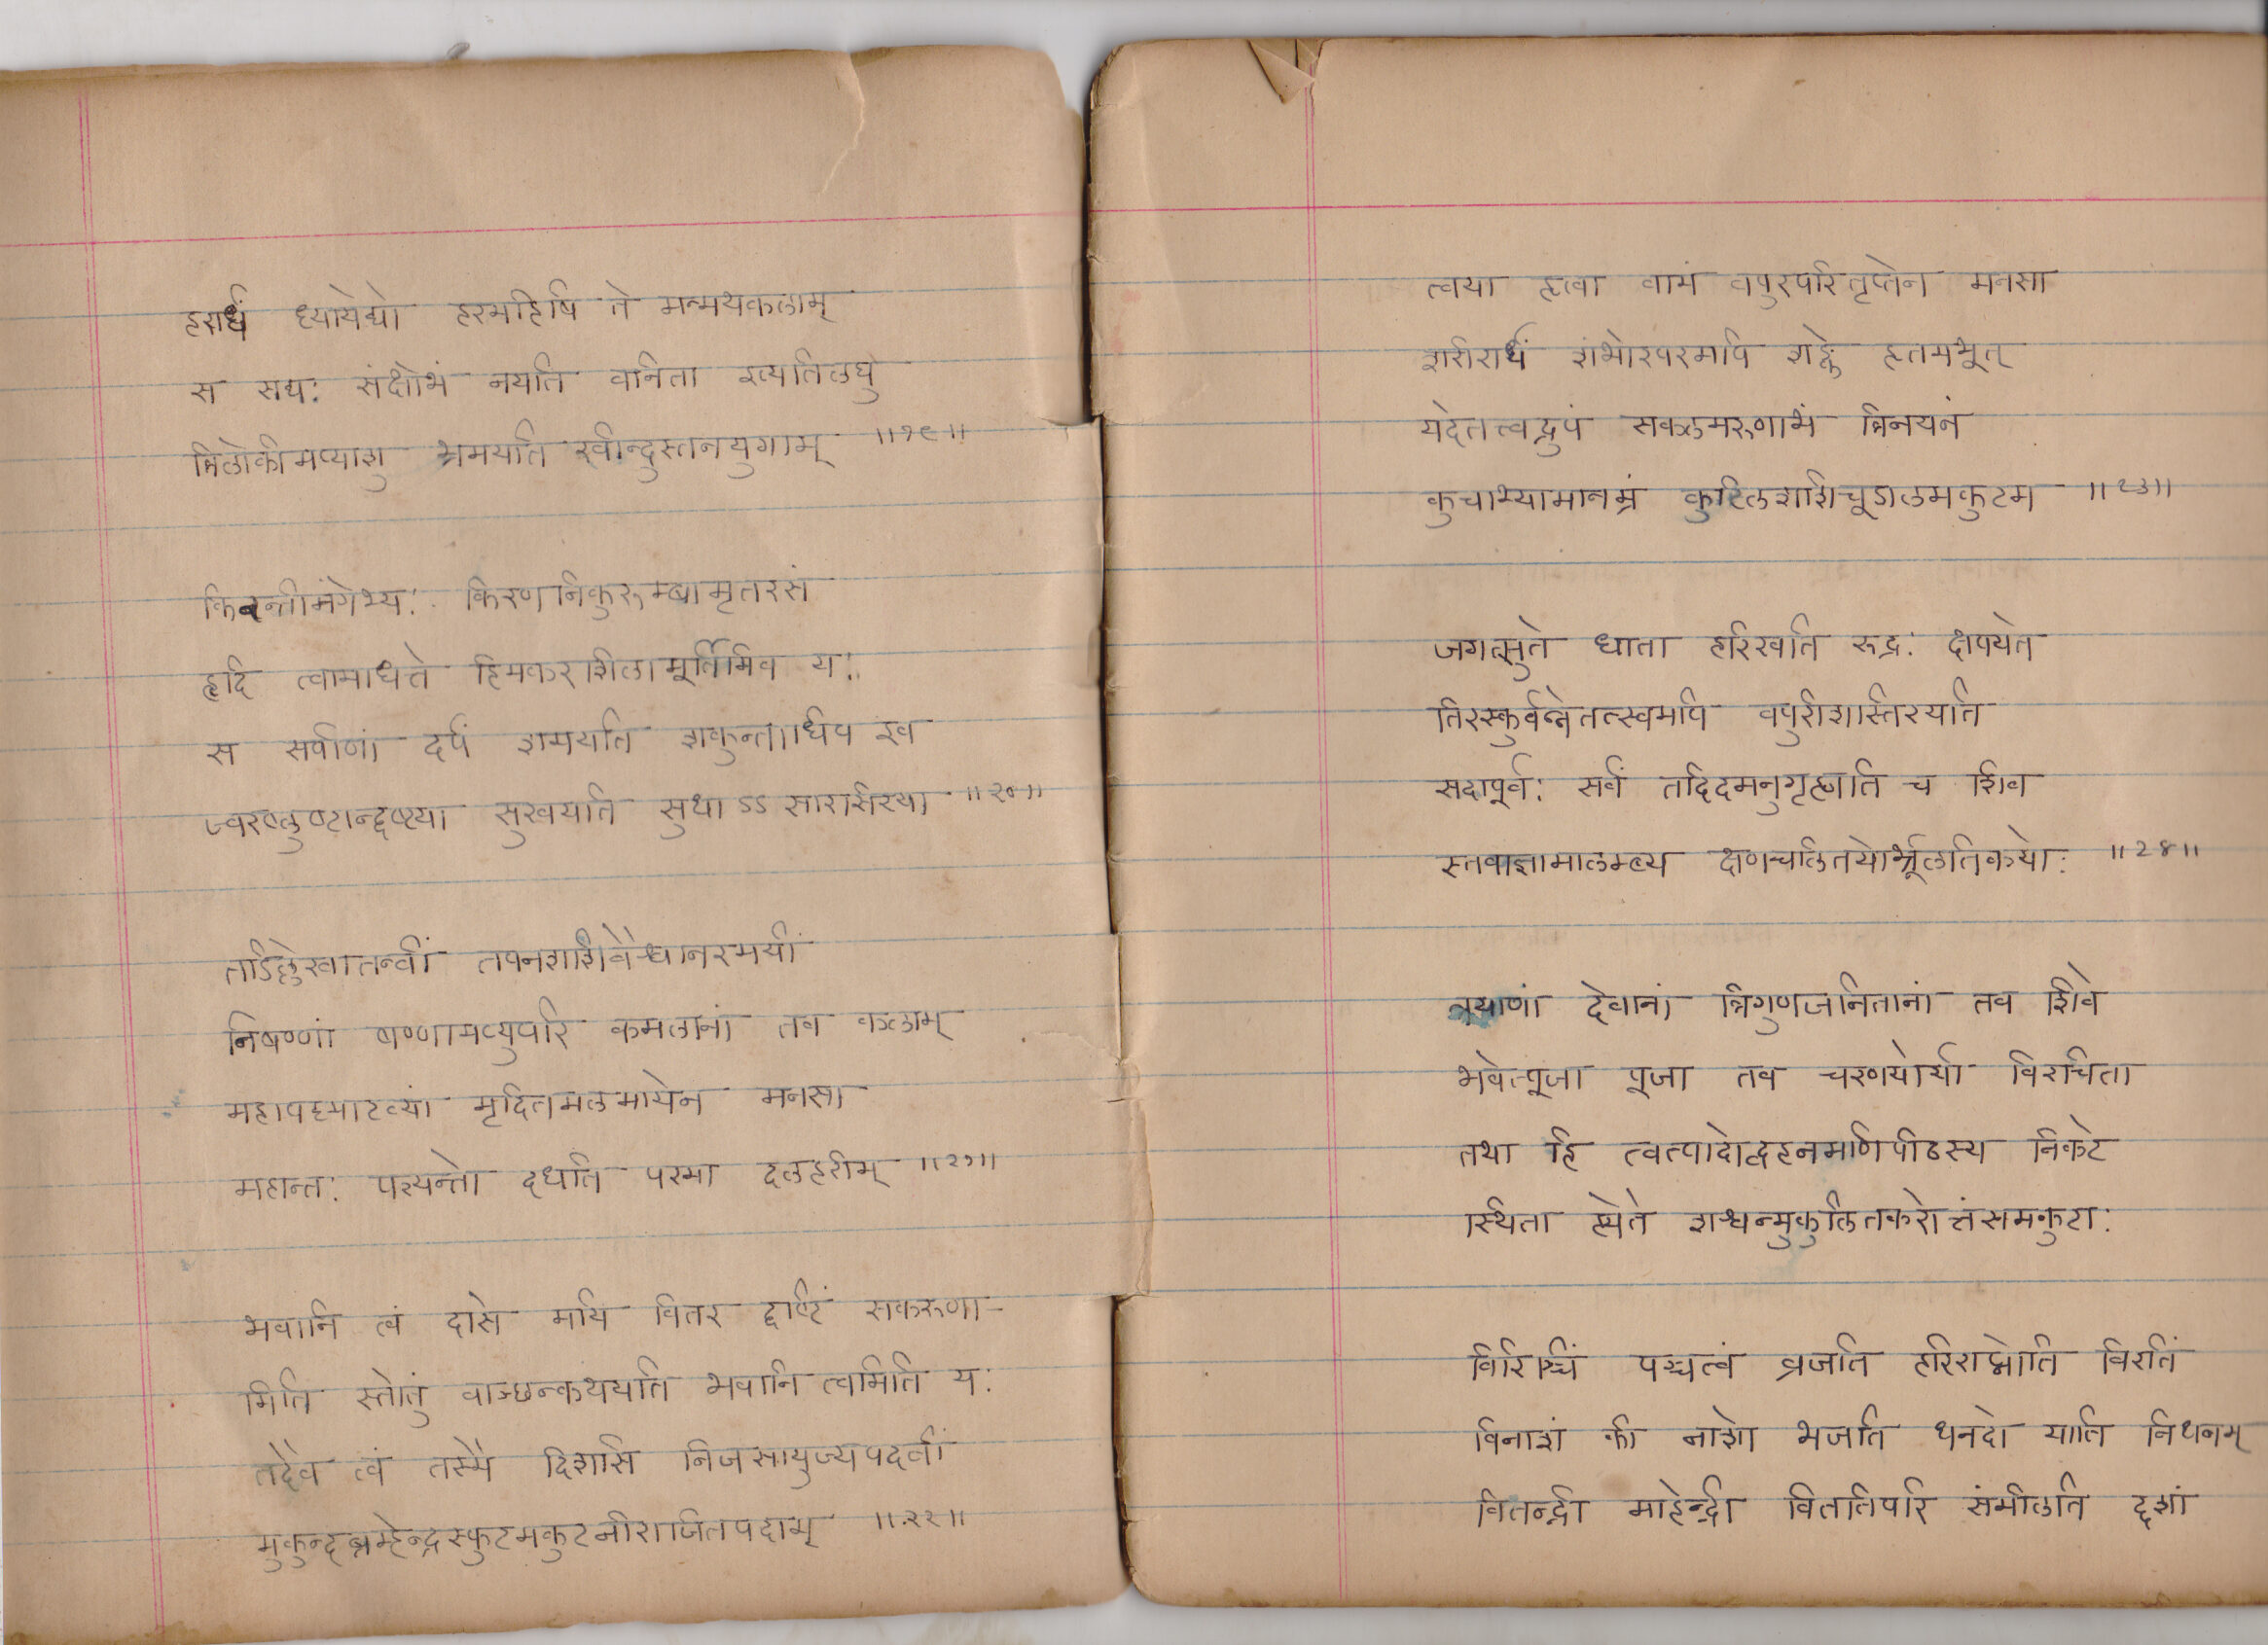 हरार्धं ध्यायेद्यो हरमहिषि ते मन्मथकलाम्
स सद्यः संक्षोभं नयति वनिता इत्यतिलघु
त्रिलोकीमप्याशु भ्रमयति रवीन्दुस्तनयुगाम् ॥१९॥
किरन्तीमंगेभ्यः किरणनिकुरुम्बामृतरसं
हृदि त्वामाधत्ते हिमकरशिलामूर्तिमिव यः
स सर्पाणां दर्पं शमयति शकुन्ताधिप इव
ज्वरप्लुष्टान्दृष्ट्या सुखयति सुधाऽऽसारसिरया ॥२०॥
तडिल्लेखातन्वीं तपनशशिवैश्वानरमयीं
निषण्णां षण्णामप्युपरि कमलानां तव कलाम्
महापद्माटव्यां मृदितमलमायेन मनसा
महान्तः पश्यन्तो दधति परमा दलहरीम् ॥२१॥
भवानि त्वं दासे मयि वितर दृष्टिं सकरुणा-
मिति स्तोतुं वाञ्छन्कथयति भवानि त्वमिति यः
तदैव त्वं तस्मै दिशसि निजसायुज्यपदवीं
मुकुन्दब्रम्हेन्द्रस्फुटमकुटनीराजितपदाम् ॥२२॥
त्वया हृत्वा वामं वपुरपरितृप्तेन मनसा
शरीरार्धं शंभोरपरमपि शङ्के हृतमभूत्
यदेतत्त्वद्रुपं सकलमरुणाभं त्रिनयनं
कुचाभ्यामानम्रं कुटिलशशिचूडालमकुटम ॥२३॥
जगत्सुते धाता हरिरवति रुद्रः क्षपयते
तिरस्कुर्वन्नेतत्स्वमपि वपुरीशस्तिरयति
सदापूर्वः सर्वं तदिदमनुगृह्णाति च शिव
स्तवाज्ञामालम्ब्य क्षणचलितयोर्भ्रूलतिकयोः ॥२४॥
त्रयाणां देवानां त्रिगुणजनितानां तव शिवे
भवेत्पूजा पूजा तव चरणयोर्या विरचिता
तथा हि त्वत्पादोद्वहनमणिपीठस्य निकटे
स्थिता ह्येते शश्वन्मुकुलितकरोत्तंसमकुटाः
विरिञ्चिं पञ्चत्वं व्रजति हरिराप्नोति विरतिं
विनाशं की नाशो भजति धनदो याति निधनम्
वितन्द्री माहेन्द्री विततिपरि संमीलति दृशां